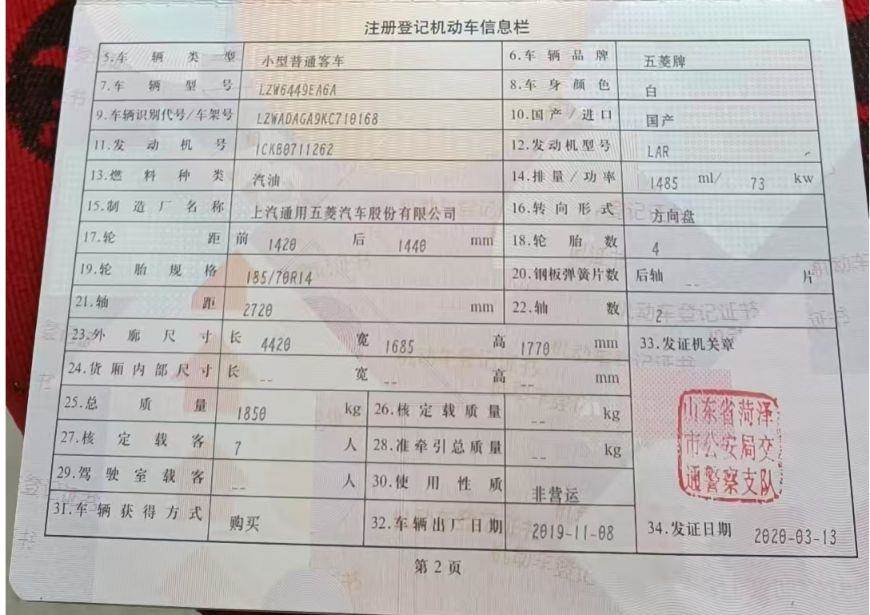 注册登记机动车信息栏
5.车辆类型 小型普通客车 6.车辆品牌 五菱牌
7.车辆型号 LZW6449EA6A 8.车身颜色 白
9.车辆识别代号/车架号 LZWADAGA9KC710168 10.国产/进口 国产
11.发动机号 1CKB0711262 12.发动机型号 LAR
13.燃料种类 汽油 14.排量/功率 1485 ml/ 73 kw
15.制造厂名称 上汽通用五菱汽车股份有限公司 16.转向形式 方向盘
17.轮距 前 1420 后 1440 mm 18.轮胎数 4
19.轮胎规格 185/70R14 20.钢板弹簧片数 后轴 -- 片
21.轴距 2720 mm 22.轴数 2
23.外廓尺寸 长 4420 宽 1685 高 1770 mm 33.发证机关章
24.货厢内部尺寸 长 -- 宽 -- 高 -- mm
25.总质量 1850 kg 26.核定载质量 -- kg
27.核定载客 7 人 28.准牵引总质量 -- kg
29.驾驶室载客 -- 人 30.使用性质 非营运
31.车辆获得方式 购买 32.车辆出厂日期 2019-11-08 34.发证日期 2020-03-13
山东省菏泽
市公安局交
通警察支队
第2页